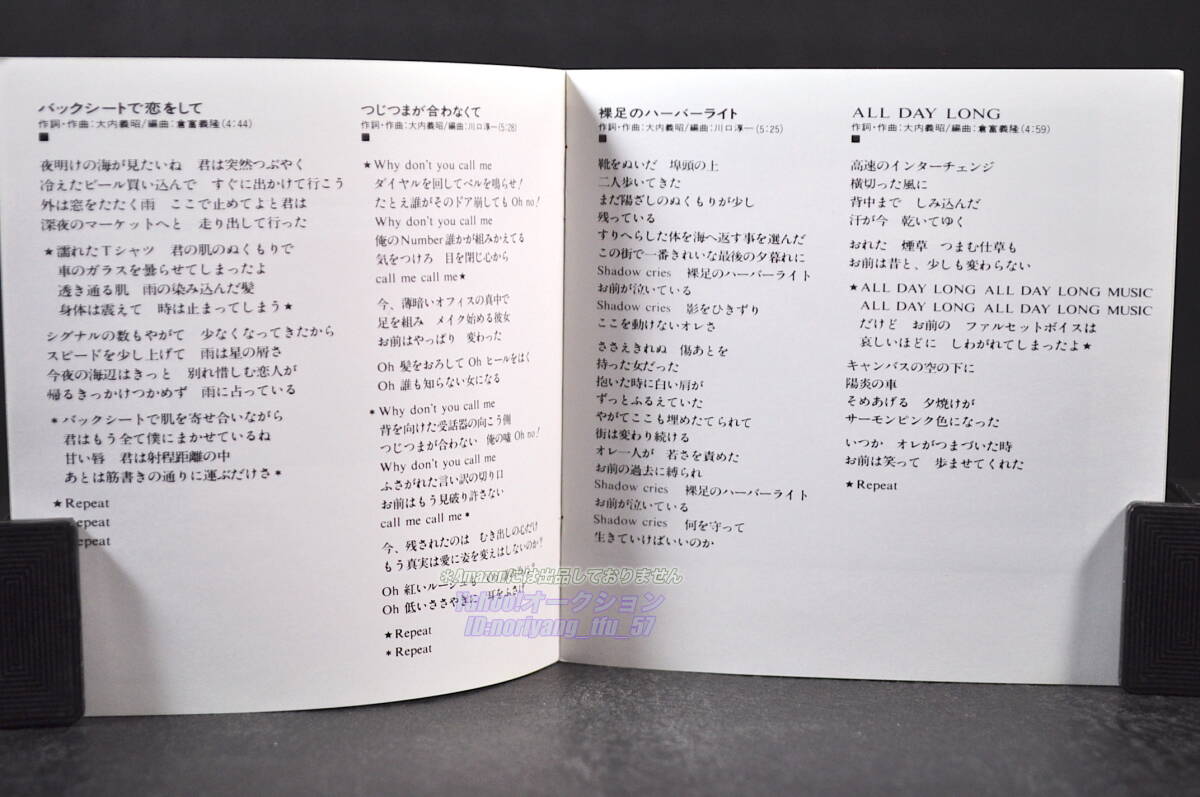 バックシートで恋をして
作詞・作曲:大内義昭/編曲:倉富義隆(4:44)
夜明けの海が見たいね 君は突然つぶやく
冷えたビール買い込んで すぐに出かけて行こう
外は窓をたたく雨 ここで止めてよと君は
深夜のマーケットへと 走り出して行った
★濡れたTシャツ 君の肌のぬくもりで
車のガラスを曇らせてしまったよ
透き通る肌 雨の染み込んだ髪
身体は震えて 時は止まってしまう★
シグナルの数もやがて 少なくなってきたから
スピードを少し上げて 雨は星の屑さ
今夜の海辺はきっと 別れ惜しむ恋人が
帰るきっかけつかめず 雨に占っている
*バックシートで肌を寄せ合いながら
君はもう全て僕にまかせているね
甘い唇 君は射程距離の中
あとは筋書きの通りに運ぶだけさ*
★Repeat
Repeat
Repeat
つじつまが合わなくて
作詞・作曲:大内義昭/編曲:川口淳一(5:28)
★Why don't you call me
ダイヤルを回してベルを鳴らせ!
たとえ誰がそのドア崩しても Oh no!
Why don't you call me
俺のNumber誰かが組みかえてる
気をつけろ 目を閉じ心から
call me call me★
今、薄暗いオフィスの真中で
足を組み メイク始める彼女
お前はやっぱり 変わった
Oh 髪をおろして Oh ヒールをはく
Oh 誰も知らない女になる
*Why don't you call me
背を向けた受話器の向こう側
つじつまが合わない 俺の嘘 Oh no!
Why don't you call me
ふさがれた言い訳の切り口
お前はもう見破り許さない
call me call me*
今、残されたのは むき出しの心だけ
もう真実は愛に姿を変えはしないのか?
Oh 紅いルージュも
Oh 低いささやきに 耳をふさげ
★Repeat
*Repeat
裸足のハーバーライト
作詞・作曲:大内義昭/編曲:川口淳一(5:25)
靴をぬいだ 埠頭の上
二人歩いてきた
まだ陽ざしのぬくもりが少し
残っている
すりへらした体を海へ返す事を選んだ
この街で一番きれいな最後の夕暮れに
Shadow cries 裸足のハーバーライト
お前が泣いている
Shadow cries 影をひきずり
ここを動けないオレさ
ささえきれぬ 傷あとを
持った女だった
抱いた時に白い肩が
ずっとふるえていた
やがてここも埋めたてられて
街は変わり続ける
オレ一人が 若さを責めた
お前の過去に縛られ
Shadow cries 裸足のハーバーライト
お前が泣いている
Shadow cries 何を守って
生きていけばいいのか
ALL DAY LONG
作詞・作曲:大内義昭/編曲:倉富義隆(4:59)
高速のインターチェンジ
横切った風に
背中まで しみ込んだ
汗が今 乾いてゆく
おれた 煙草 つまむ仕草も
お前は昔と、少しも変わらない
★ALL DAY LONG ALL DAY LONG MUSIC
ALL DAY LONG ALL DAY LONG MUSIC
だけど お前の ファルセットボイスは
哀しいほどに しわがれてしまったよ★
キャンバスの空の下に
陽炎の車
そめあげる 夕焼けが
サーモンピンク色になった
いつか オレがつまづいた時
お前は笑って 歩ませてくれた
★Repeat
*Amazonには出品しておりません
Yahoo!オークション
ID:noriyang_tfu_57